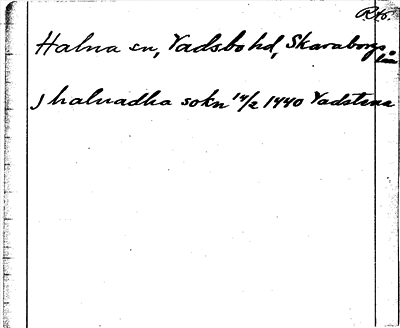 RAp.
Halna sn, Vadsbo hd, Skaraborgs
län
J halnadha sokn 14/2 1440 Vadstena